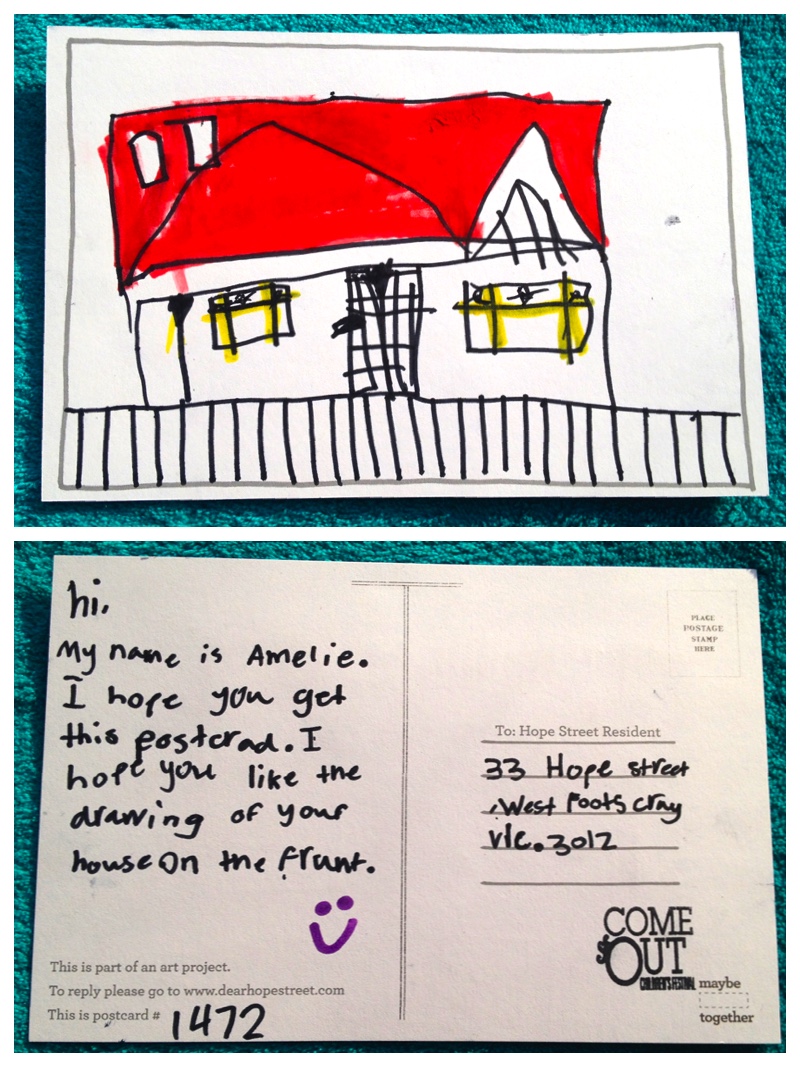 hi.
My name is Amelie.
I hope you get
this postcrad. I
hope you like the
drawing of your
house on the frunt.
This is part of an art project.
To reply please go to www.dearhopestreet.com
This is postcard # 1472
PLACE
POSTAGE
STAMP
HERE
To: Hope Street Resident
33 Hope street
West Footscray
vic. 3012
COME
OUT
CHILDREN'S FESTIVAL
maybe
together